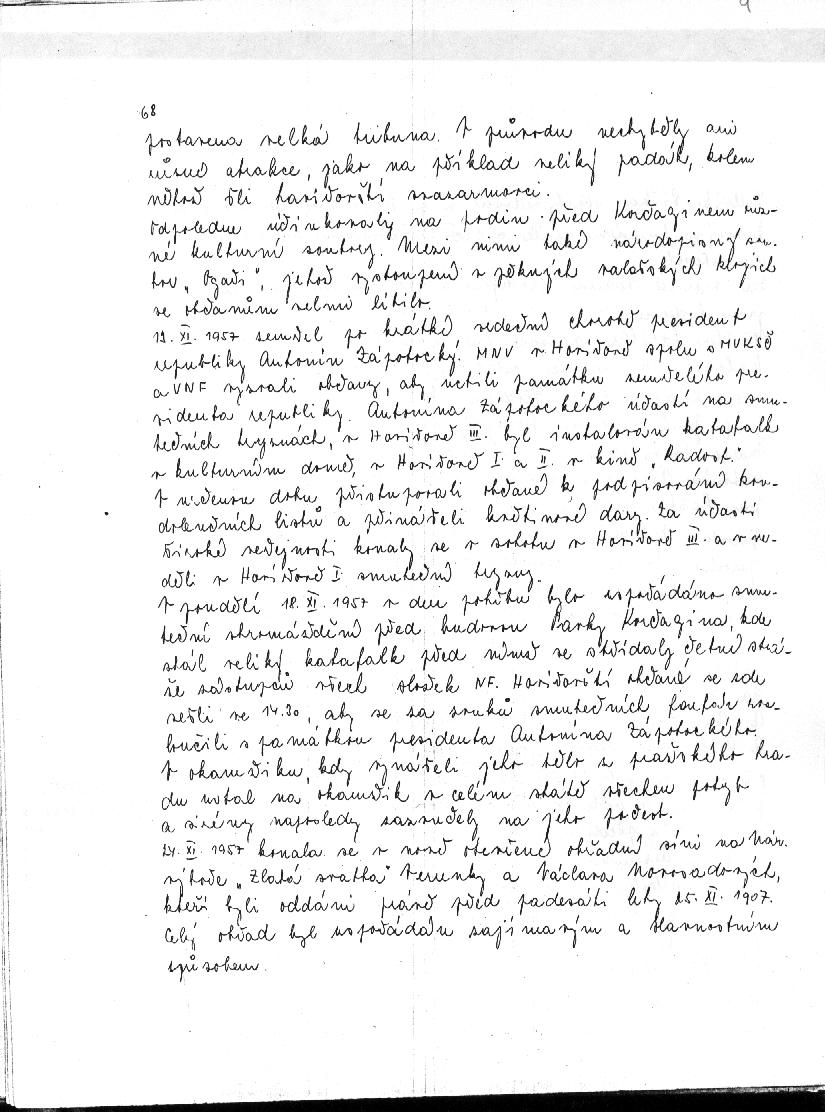 9
68
postavena velká tribuna. V průvodu nechyběly ani
různé atrakce, jako na příklad veliký padák, kolem
něhož šli havířovští svazarmovci.
Odpoledne účinkovaly na podiu před Korčaginem růz-
né kulturní soubory. Mezi nimi také národopisný sou-
bor „Ogaři", jehož vystoupení v pěkných valašských krojích
se občanům velmi líbilo.
13. XI. 1957 zemřel po krátké srdeční chorobě president
republiky Antonín Zápotocký. MNV v Havířově spolu s MVKSČ
a VNF vyzvali občany, aby uctili památku zemřelého pre-
sidenta republiky Antonína Zápotockého účastí na smu-
tečních tryznách, v Havířově III. byl instalován katafalk
v kulturním domě, v Havířově I. a II. v kině „Radost."
V určenou dobu přistupovali občané k podpisování kon-
dolenčních listů a přinášeli květinové dary. Za účasti
široké veřejnosti konaly se v sobotu v Havířově III. a v ne-
děli v Havířově I. smuteční tryzny.
V pondělí 18. XI. 1957 v den pohřbu bylo uspořádáno smu-
teční shromáždění před budovou Pavky Korčagina, kde
stál veliký katafalk před nímž se střídaly četné strá-
že zástupců všech složek NF. Havířovští občané se zde
sešli ve 14.30, aby se za zvuků smutečních fanfár roz-
loučili s památkou presidenta Antonína Zápotockého.
V okamžiku, kdy vynášeli jeho tělo z pražského hra-
du ustal na okamžik v celém státě všechen pohyb
a sirény naposledy zazněly na jeho počest.
24. XI. 1957 konala se v nově otevřené obřadní síni na Nár.
výboře „Zlatá svatba" Terunky a Václava Novosadových,
kteří byli oddáni právě před padesáti lety 25. XI. 1907.
Celý obřad byl uspořádán zajímavým a slavnostním
způsobem.